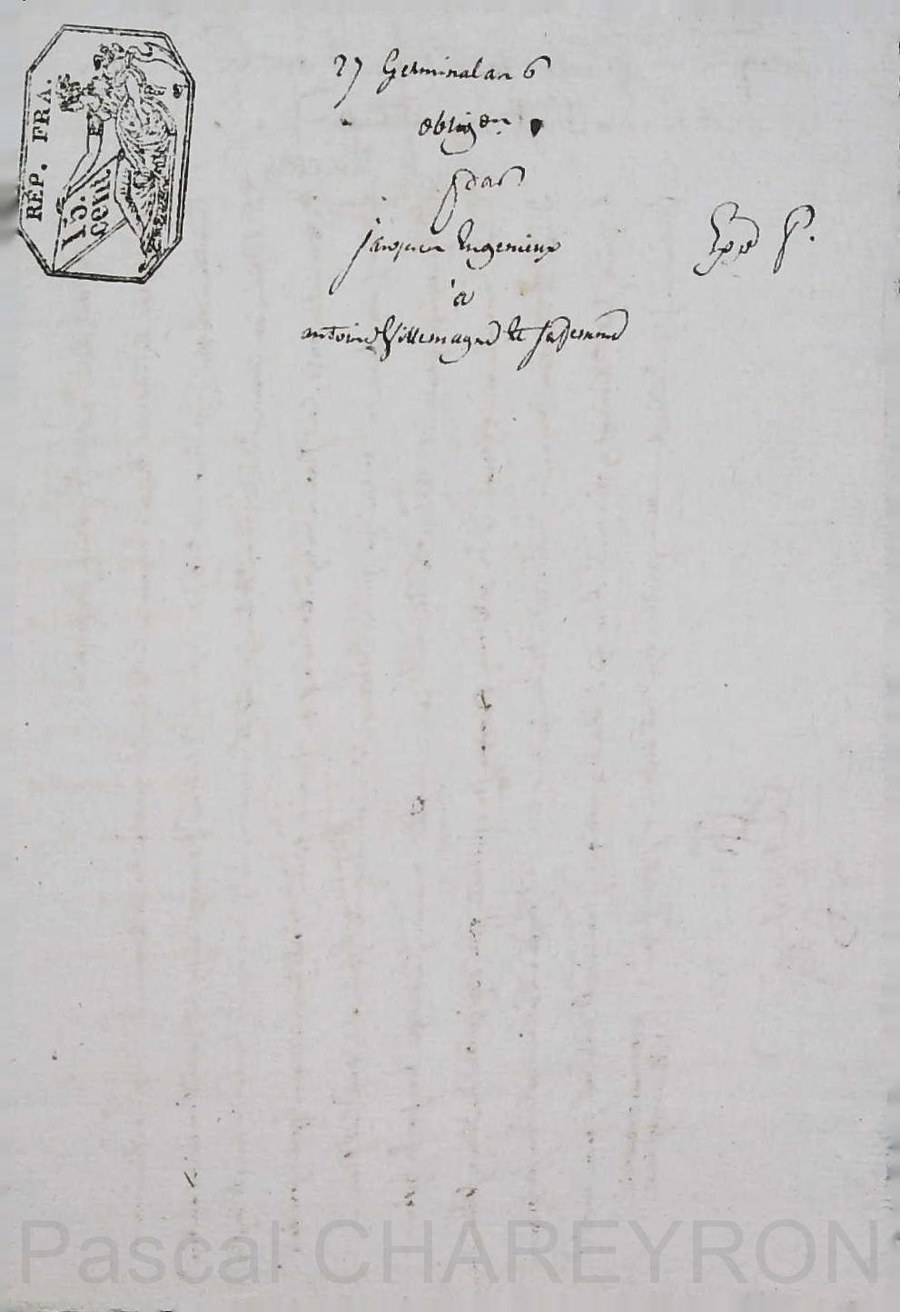 RÉP. FRA.
15.
cent.
27 Germinal an 6
obligon
par
jacques Ingenieux
a
antoine Villemagne et sa femme
Pascal CHAREYRON